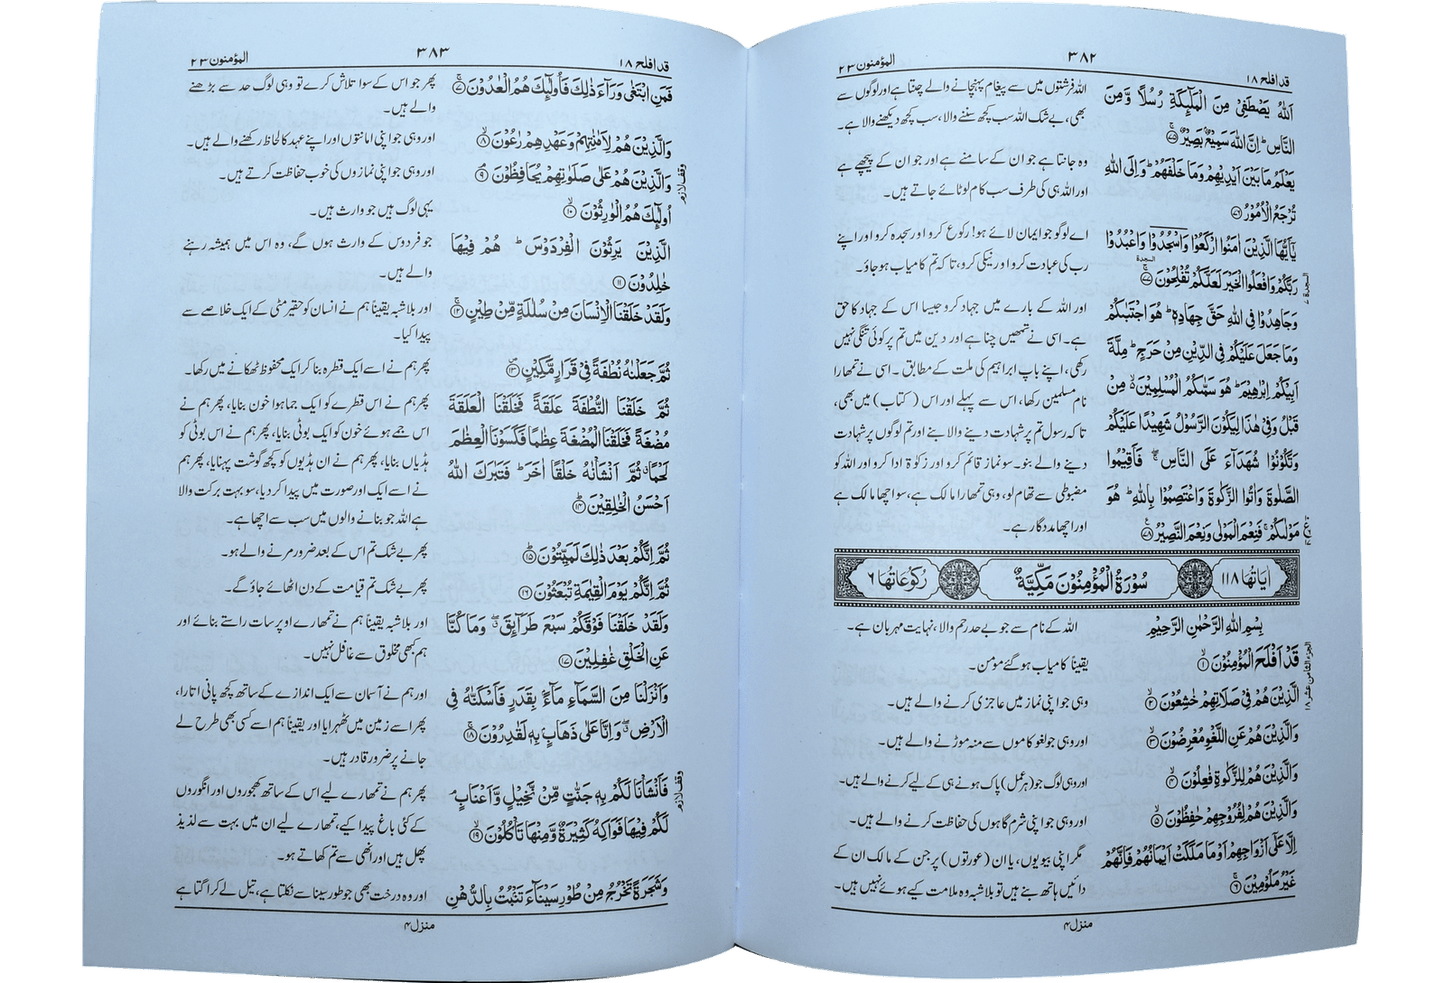 قد افلح ۱۸
۳۸۲
المؤمنون ۲۳
اَللّٰهُ يَصْطَفِيْ مِنَ الْمَلٰٓىِٕكَةِ رُسُلًا وَّمِنَ
النَّاسِ ؕ اِنَّ اللّٰهَ سَمِيْعٌۢ بَصِيْرٌ ۟ۚ ۷۵
يَعْلَمُ مَا بَيْنَ اَيْدِيْهِمْ وَمَا خَلْفَهُمْ ؕ وَاِلَى اللّٰهِ
تُرْجَعُ الْاُمُوْرُ ۷۶
يٰۤاَيُّهَا الَّذِيْنَ اٰمَنُوا ارْكَعُوْا وَاسْجُدُوْا وَاعْبُدُوْا
رَبَّكُمْ وَافْعَلُوا الْخَيْرَ لَعَلَّكُمْ تُفْلِحُوْنَ ۷۷
وَجَاهِدُوْا فِي اللّٰهِ حَقَّ جِهَادِهٖ ؕ هُوَ اجْتَبٰىكُمْ
وَمَا جَعَلَ عَلَيْكُمْ فِي الدِّيْنِ مِنْ حَرَجٍ ؕ مِلَّةَ
اَبِيْكُمْ اِبْرٰهِيْمَ ؕ هُوَ سَمّٰىكُمُ الْمُسْلِمِيْنَ ۙ۬ مِنْ
قَبْلُ وَفِيْ هٰذَا لِيَكُوْنَ الرَّسُوْلُ شَهِيْدًا عَلَيْكُمْ
وَتَكُوْنُوْا شُهَدَآءَ عَلَى النَّاسِ ۖۚ فَاَقِيْمُوا
الصَّلٰوةَ وَاٰتُوا الزَّكٰوةَ وَاعْتَصِمُوْا بِاللّٰهِ ؕ هُوَ
مَوْلٰىكُمْ ۚ فَنِعْمَ الْمَوْلٰى وَنِعْمَ النَّصِيْرُ ۷۸
اللہ فرشتوں میں سے پیغام پہنچانے والے چنتا ہے اور لوگوں سے
بھی، بے شک اللہ سب کچھ سننے والا، سب کچھ دیکھنے والا ہے۔
وہ جانتا ہے جو ان کے سامنے ہے اور جو ان کے پیچھے ہے
اور اللہ ہی کی طرف سب کام لوٹائے جاتے ہیں۔
اے لوگو جو ایمان لائے ہو! رکوع کرو اور سجدہ کرو اور اپنے
رب کی عبادت کرو اور نیکی کرو، تاکہ تم کامیاب ہو جاؤ۔
اور اللہ کے بارے میں جہاد کرو جیسا اس کے جہاد کا حق
ہے۔ اسی نے تمھیں چنا ہے اور دین میں تم پر کوئی تنگی نہیں
رکھی، اپنے باپ ابراہیم کی ملت کے مطابق۔ اسی نے تمھارا
نام مسلمین رکھا، اس سے پہلے اور اس (کتاب) میں بھی،
تاکہ رسول تم پر شہادت دینے والا بنے اور تم لوگوں پر شہادت
دینے والے بنو۔ سو نماز قائم کرو اور زکوٰۃ ادا کرو اور اللہ کو
مضبوطی سے تھام لو، وہی تمھارا مالک ہے، سو اچھا مالک ہے
اور اچھا مددگار ہے۔
السجدة
اٰيَاتُهَا ۱۱۸
سُوْرَةُ الْمُؤْمِنُوْنَ مَكِّيَّةٌ
رُكُوْعَاتُهَا ۶
بِسْمِ اللّٰهِ الرَّحْمٰنِ الرَّحِيْمِ
اللہ کے نام سے جو بے حد رحم والا، نہایت مہربان ہے۔
الجزء الثامن عشر ۱۸
قَدْ اَفْلَحَ الْمُؤْمِنُوْنَ ۱
یقیناً کامیاب ہو گئے مومن۔
الَّذِيْنَ هُمْ فِيْ صَلَاتِهِمْ خٰشِعُوْنَ ۲
وہی جو اپنی نماز میں عاجزی کرنے والے ہیں۔
وَالَّذِيْنَ هُمْ عَنِ اللَّغْوِ مُعْرِضُوْنَ ۳
اور وہی جو لغو کاموں سے منہ موڑنے والے ہیں۔
وَالَّذِيْنَ هُمْ لِلزَّكٰوةِ فٰعِلُوْنَ ۴
اور وہی لوگ جو (ہر عمل) پاک ہونے ہی کے لیے کرنے والے ہیں۔
وَالَّذِيْنَ هُمْ لِفُرُوْجِهِمْ حٰفِظُوْنَ ۵
اور وہی جو اپنی شرم گاہوں کی حفاظت کرنے والے ہیں۔
اِلَّا عَلٰۤى اَزْوَاجِهِمْ اَوْ مَا مَلَكَتْ اَيْمَانُهُمْ فَاِنَّهُمْ
غَيْرُ مَلُوْمِيْنَ ۶
مگر اپنی بیویوں، یا ان (عورتوں) پر جن کے مالک ان کے
دائیں ہاتھ بنے ہیں تو بلاشبہ وہ ملامت کیے ہوئے نہیں ہیں۔
منزل ۴
قد افلح ۱۸
۳۸۳
المؤمنون ۲۳
فَمَنِ ابْتَغٰى وَرَآءَ ذٰلِكَ فَاُولٰٓىِٕكَ هُمُ الْعٰدُوْنَ ۷
پھر جو اس کے سوا تلاش کرے تو وہی لوگ حد سے بڑھنے
والے ہیں۔
وَالَّذِيْنَ هُمْ لِاَمٰنٰتِهِمْ وَعَهْدِهِمْ رٰعُوْنَ ۸
اور وہی جو اپنی امانتوں اور اپنے عہد کا لحاظ رکھنے والے ہیں۔
وَالَّذِيْنَ هُمْ عَلٰى صَلَوٰتِهِمْ يُحَافِظُوْنَ ۹
اور وہی جو اپنی نمازوں کی خوب حفاظت کرتے ہیں۔
وقف لازم
اُولٰٓىِٕكَ هُمُ الْوٰرِثُوْنَ ۱۰
یہی لوگ ہیں جو وارث ہیں۔
الَّذِيْنَ يَرِثُوْنَ الْفِرْدَوْسَ ؕ هُمْ فِيْهَا
خٰلِدُوْنَ ۱۱
جو فردوس کے وارث ہوں گے، وہ اس میں ہمیشہ رہنے
والے ہیں۔
وَلَقَدْ خَلَقْنَا الْاِنْسَانَ مِنْ سُلٰلَةٍ مِّنْ طِيْنٍ ۱۲
اور بلاشبہ یقیناً ہم نے انسان کو حقیر مٹی کے ایک خلاصے سے
پیدا کیا۔
ثُمَّ جَعَلْنٰهُ نُطْفَةً فِيْ قَرَارٍ مَّكِيْنٍ ۱۳
پھر ہم نے اسے ایک قطرہ بنا کر ایک محفوظ ٹھکانے میں رکھا۔
ثُمَّ خَلَقْنَا النُّطْفَةَ عَلَقَةً فَخَلَقْنَا الْعَلَقَةَ
مُضْغَةً فَخَلَقْنَا الْمُضْغَةَ عِظٰمًا فَكَسَوْنَا الْعِظٰمَ
لَحْمًا ۗ ثُمَّ اَنْشَاْنٰهُ خَلْقًا اٰخَرَ ؕ فَتَبٰرَكَ اللّٰهُ
اَحْسَنُ الْخٰلِقِيْنَ ۱۴
پھر ہم نے اس قطرے کو ایک جما ہوا خون بنایا، پھر ہم نے
اس جمے ہوئے خون کو ایک بوٹی بنایا، پھر ہم نے اس بوٹی کو
ہڈیاں بنایا، پھر ہم نے ان ہڈیوں کو کچھ گوشت پہنایا، پھر ہم
نے اسے ایک اور صورت میں پیدا کر دیا، سو بہت برکت والا
ہے اللہ جو بنانے والوں میں سب سے اچھا ہے۔
ثُمَّ اِنَّكُمْ بَعْدَ ذٰلِكَ لَمَيِّتُوْنَ ۱۵
پھر بے شک تم اس کے بعد ضرور مرنے والے ہو۔
ثُمَّ اِنَّكُمْ يَوْمَ الْقِيٰمَةِ تُبْعَثُوْنَ ۱۶
پھر بے شک تم قیامت کے دن اٹھائے جاؤ گے۔
وَلَقَدْ خَلَقْنَا فَوْقَكُمْ سَبْعَ طَرَآىِٕقَ ۖۗ وَمَا كُنَّا
عَنِ الْخَلْقِ غٰفِلِيْنَ ۱۷
اور بلاشبہ یقیناً ہم نے تمھارے اوپر سات راستے بنائے اور
ہم کبھی مخلوق سے غافل نہیں۔
وَاَنْزَلْنَا مِنَ السَّمَآءِ مَآءًۢ بِقَدَرٍ فَاَسْكَنّٰهُ فِي
الْاَرْضِ ۖۗ وَاِنَّا عَلٰى ذَهَابٍۭ بِهٖ لَقٰدِرُوْنَ ۱۸
اور ہم نے آسمان سے ایک اندازے کے ساتھ کچھ پانی اتارا،
پھر اسے زمین میں ٹھہرایا اور یقیناً ہم اسے کسی بھی طرح لے
جانے پر ضرور قادر ہیں۔
فَاَنْشَاْنَا لَكُمْ بِهٖ جَنّٰتٍ مِّنْ نَّخِيْلٍ وَّاَعْنَابٍ ۘ
لَكُمْ فِيْهَا فَوَاكِهُ كَثِيْرَةٌ وَّمِنْهَا تَاْكُلُوْنَ ۱۹
وقف لازم
پھر ہم نے تمھارے لیے اس کے ساتھ کھجوروں اور انگوروں
کے کئی باغ پیدا کیے، تمھارے لیے ان میں بہت سے لذیذ
پھل ہیں اور انھی سے تم کھاتے ہو۔
وَشَجَرَةً تَخْرُجُ مِنْ طُوْرِ سَيْنَآءَ تَنْۢبُتُ بِالدُّهْنِ
اور وہ درخت بھی جو طور سینا سے نکلتا ہے، تیل لے کر اگتا ہے
منزل ۴